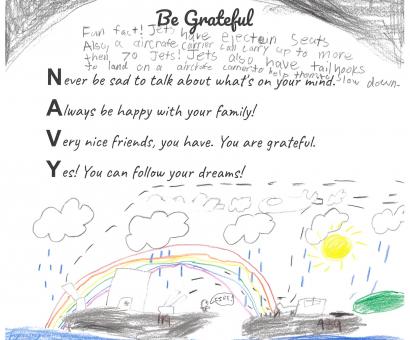 Be Grateful
Fun fact! Jets have ejecten seats
Also a aircrate carrier can carry up to more
then 70 Jets! Jets also have tailhooks
to land on a aircrate carrier to help them to slow down.
Never be sad to talk about what's on your mind.
Always be happy with your family!
Very nice friends, you have. You are grateful.
Yes! You can follow your dreams!